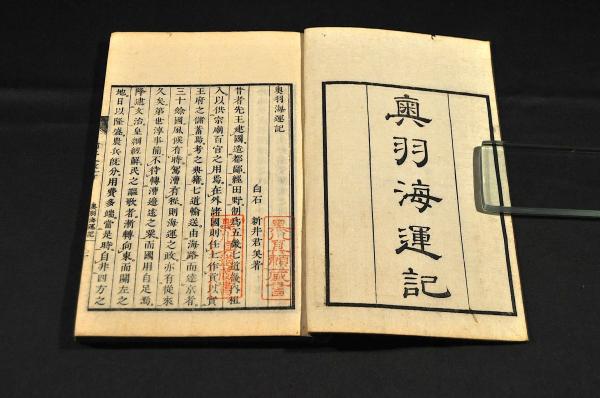 奥羽海運記
奥羽海運記
白石 新井君美著
昔者先王建國造都鄙經田野制爲五畿七道畿内租
入以供宗廟百官之用焉在外諸國則任土作貢以實
王府之儲蓄焉考之典籍七道輸送由海路而達京者
三十餘國風候有時駕漕有程則海運之政亦有從來
久矣第世淳事簡不待轉漕邊遠之粟而國用自足焉
降逮文治皇綱解民之謳歌者漸轉向東而關左之
地日以隆盛農兵既分用費多端當是時自非四方之
奥羽海運記